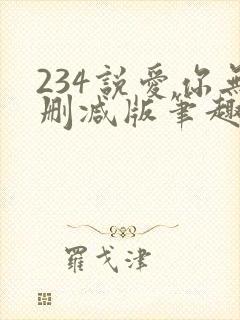 234説愛你無
删减版筆趣
羅戈津